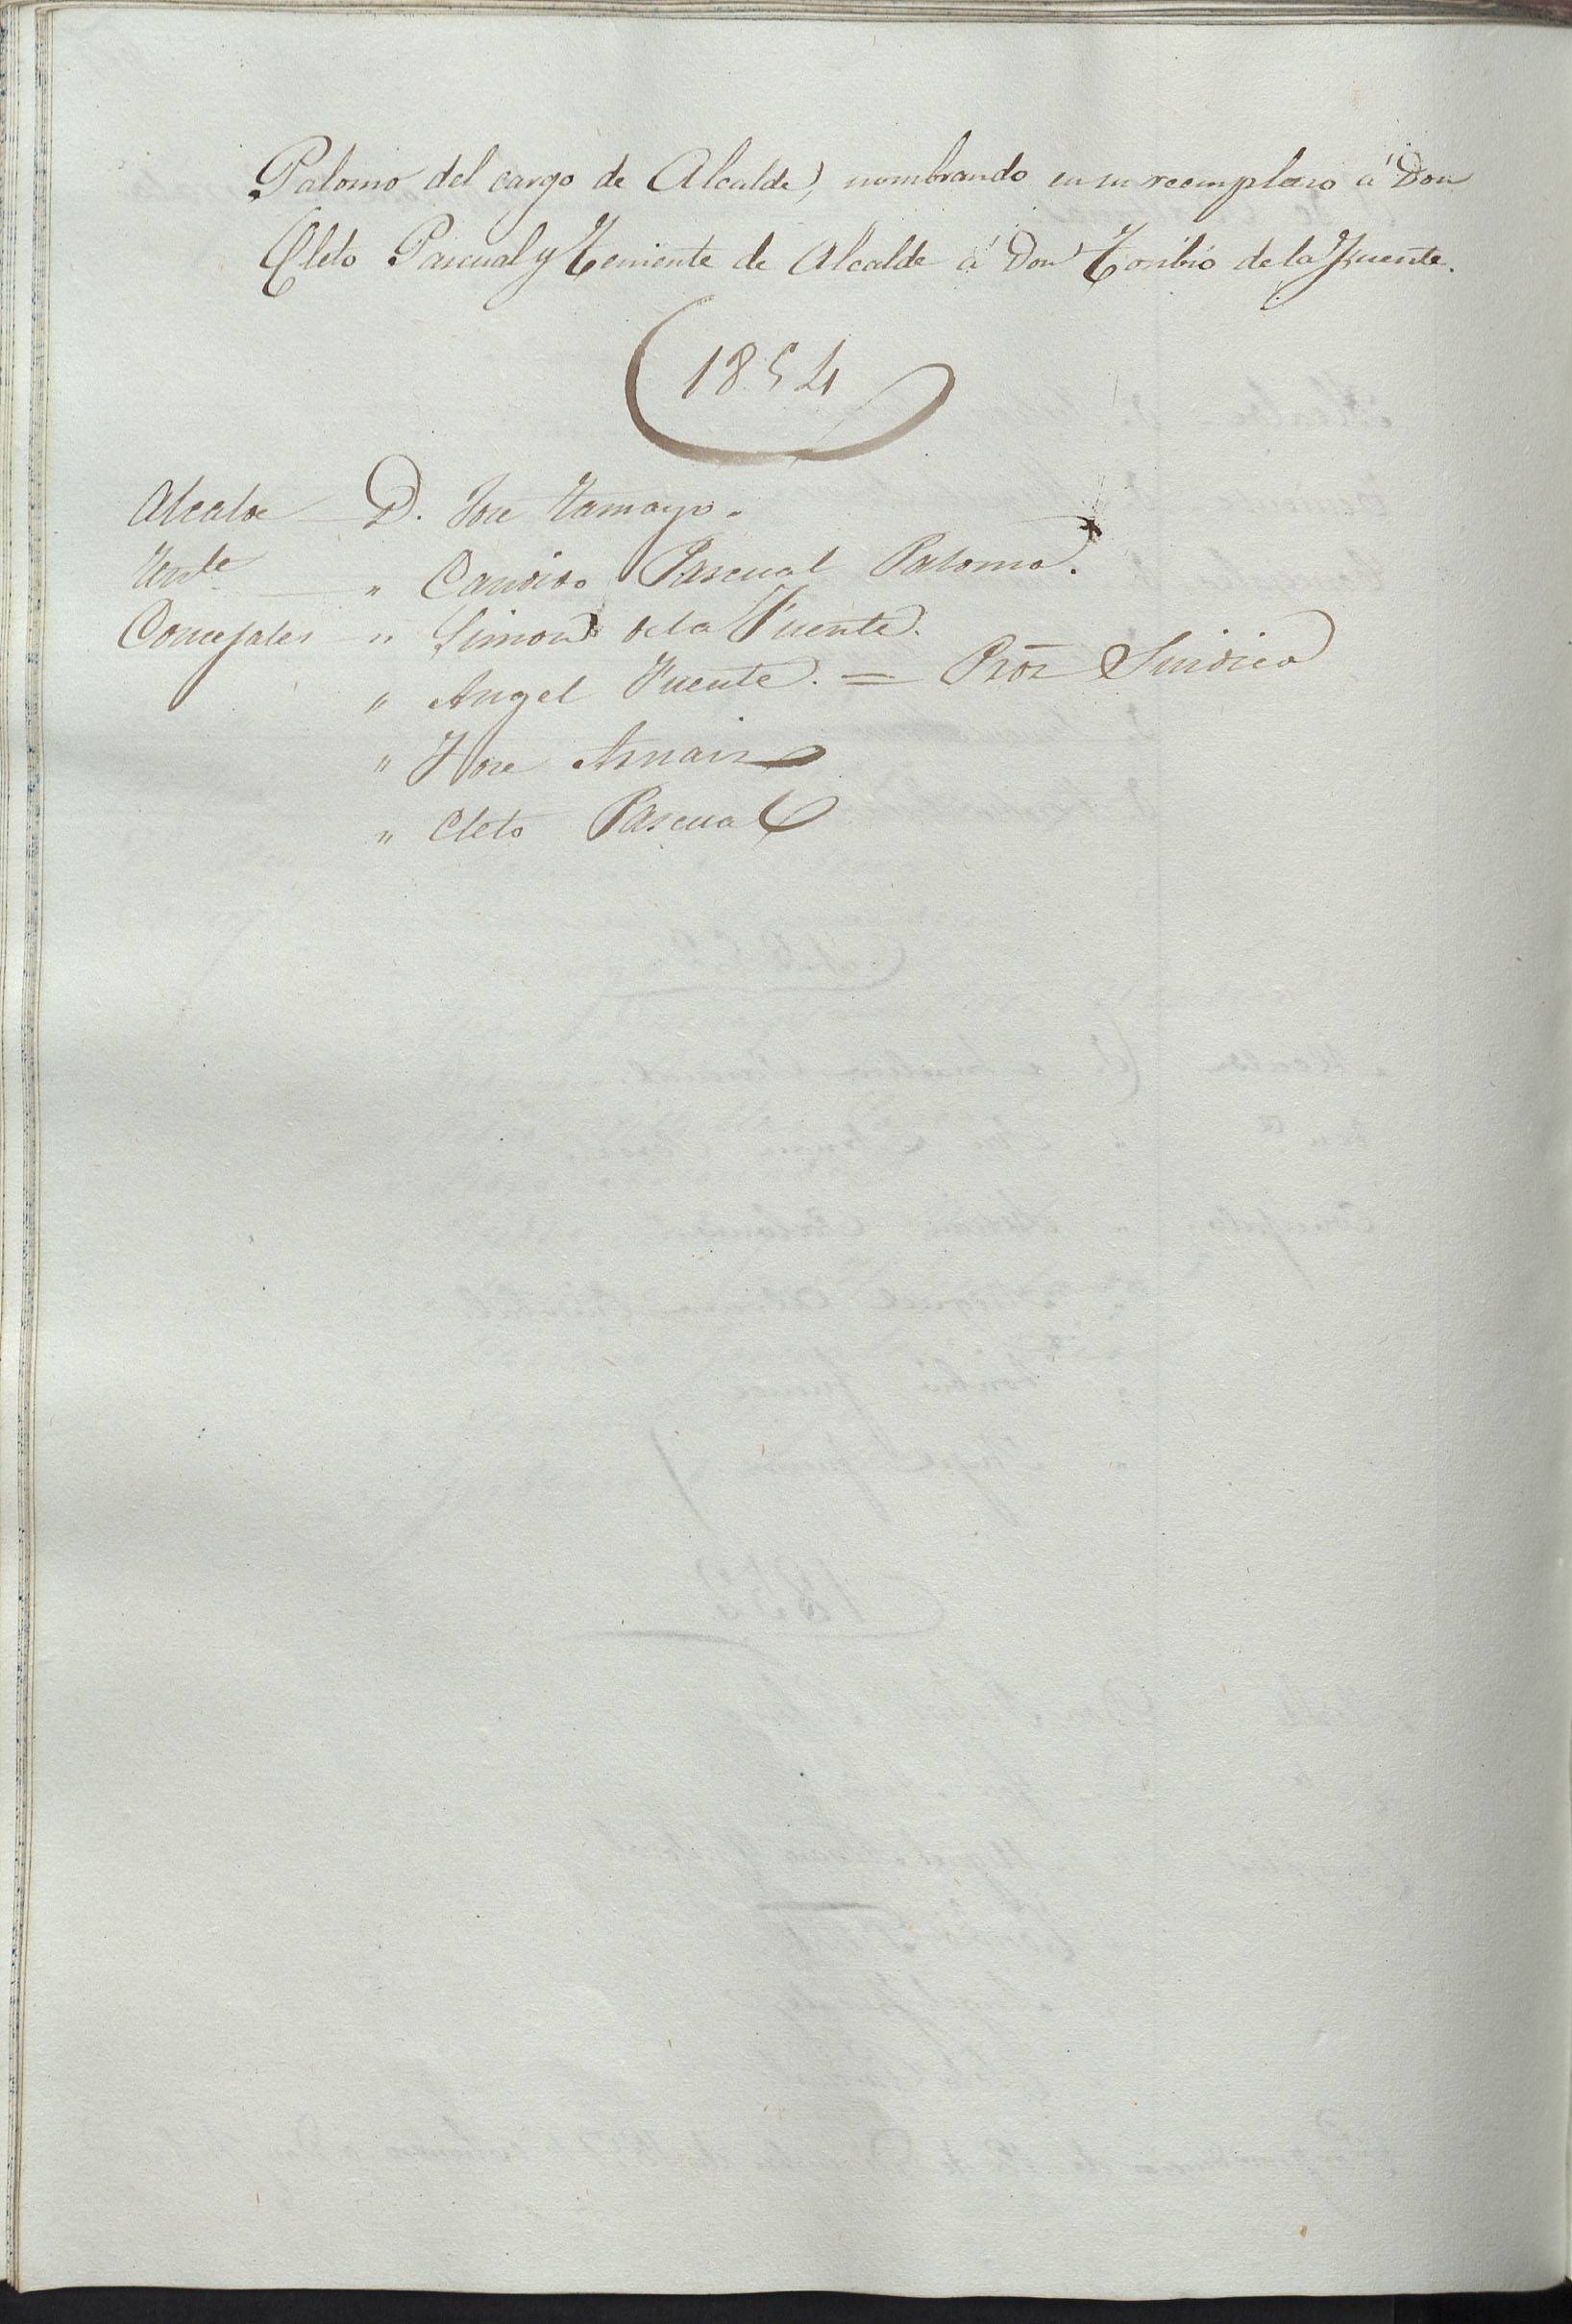 Palomo del cargo de Alcalde, nombrando en su reemplazo á Don
Cleto Pascual y Teniente de Alcalde á Don Toribio de la Fuente.
1854
Alcalde D. Jose Tamayo.
Tnte " Candido Pascual Palomo.
Concejales " Simon de la Fuente.
" Angel Fuente. = Pror Sindico
" Jose Arnaiz
" Cleto Pascual